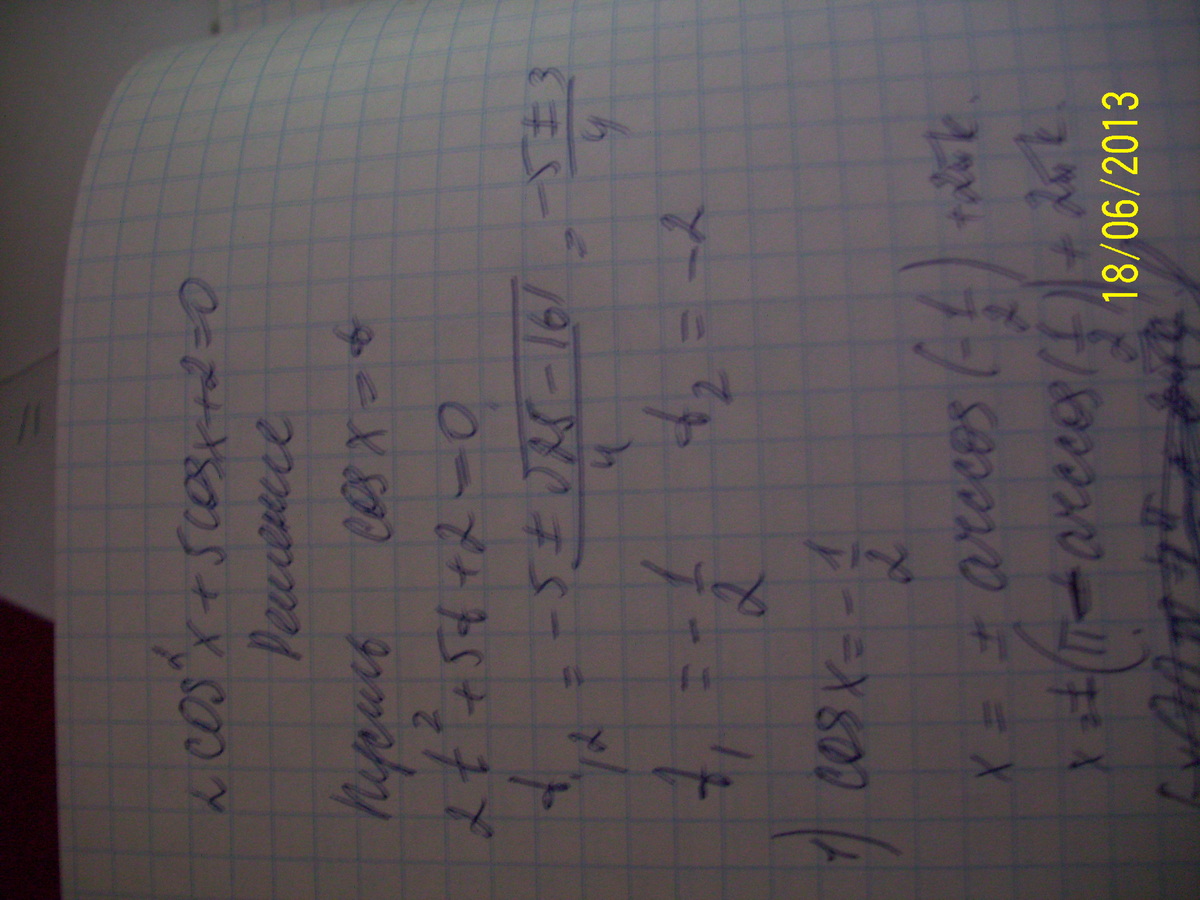 2 cos² x + 5 cos x + 2 = 0
Решение
Пусть cos x = t
2 t² + 5t + 2 = 0
t₁,₂ = -5 ± √25 - 16 / 4 = -5 ± 3 / 4
t₁ = - 1/2 t₂ = -2
1) cos x = - 1/2
x = ± arccos (- 1/2) + 2πk.
x = ± (π - arccos (1/2)) + 2πk.
18/06/2013